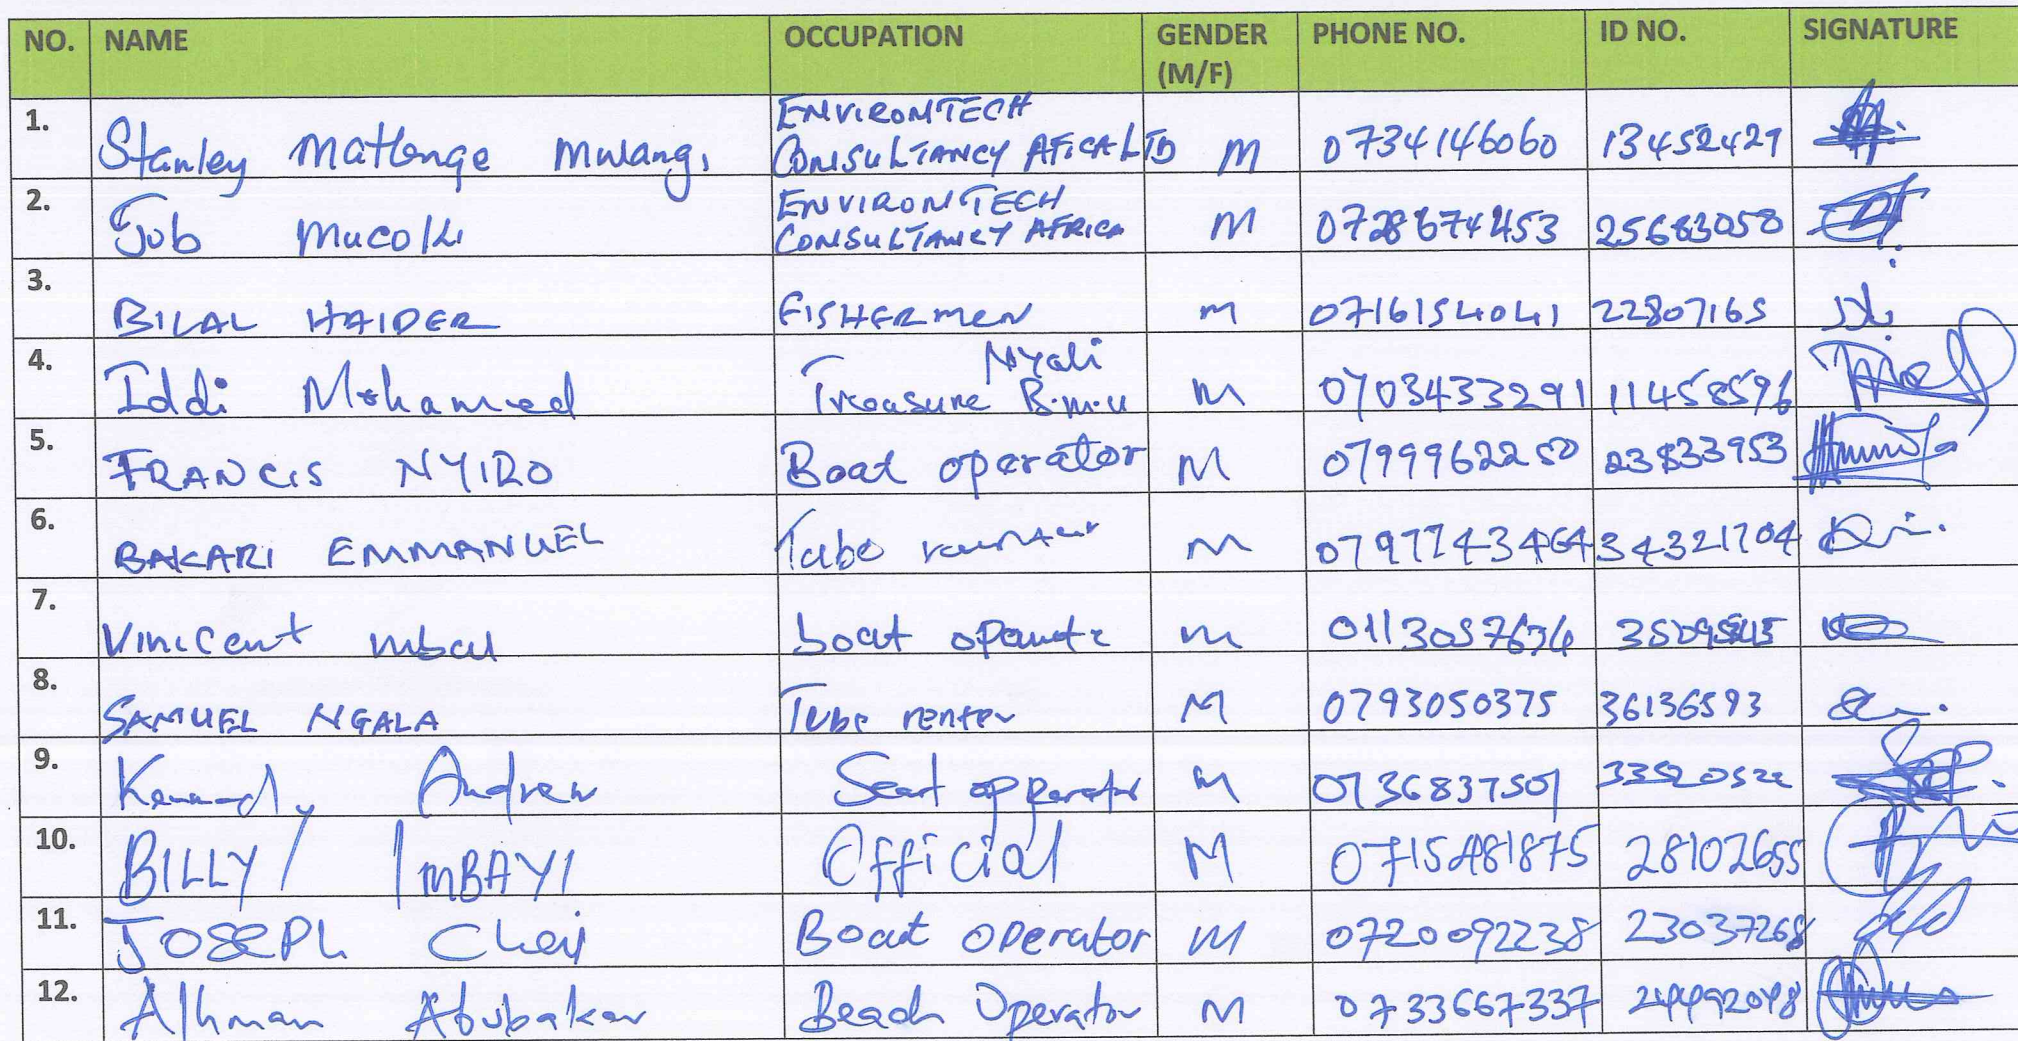 NO. NAME OCCUPATION GENDER (M/F) PHONE NO. ID NO. SIGNATURE
1. Stanley Mathenge Mwangi ENVIRONTECH CONSULTANCY AFICA LTD M 0734146060 13452429
2. Job Mucoki ENVIRONTECH CONSULTANCY AFRICA M 0728674453 25683058
3. BILAL HAIDER FISHERMEN M 0716154041 22807165
4. Iddi Mohamed Treasure Nyali B.M.U M 0703433291 11458596
5. FRANCIS NYIRO Boat operator M 0799962250 23833953
6. BAKARI EMMANUEL Tube M 0797743464 34321704
7. Vinicent boat M
8. SAMUEL NGALA Tube renter M 0793050375 36136593
9. Kennedy Andrew opperator M 0736837507 33520522
10. BILLY IMBAYI Official M 0715481875 28102655
11. JOSEPh M 0720092238 23037268 Boat operator
12. Athman Abubakar Beach Operator M 0733667337